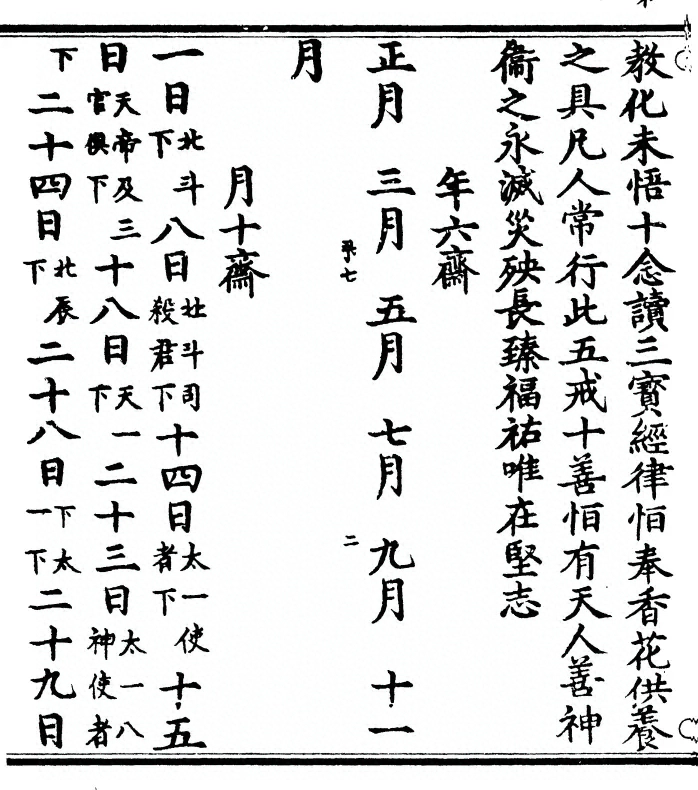 教化未悟十念讀三寶經律恒奉香花供養
之具凡人常行此五戒十善恒有天人善神
衞之永滅災殃長臻福祐唯在堅志
年六齋
正月 三月 五月 七月 九月 十一
二
月
月十齋
一日北斗下八日北斗司殺君下十四日太一使者下十五
日天帝及三官俱下十八日天一下二十三日太一八神使者
下二十四日北辰下二十八日下太一下二十九日